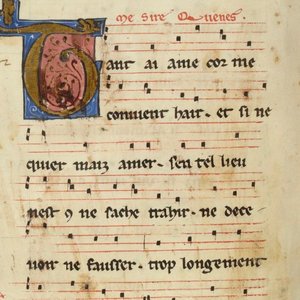 me sire Quenes.
Tant ai ame cor me
conuient hair. et si ne
quier maiz amer. sen tel lieu
nest q ne sache trahir. ne dece
uoir ne fausser. trop longement